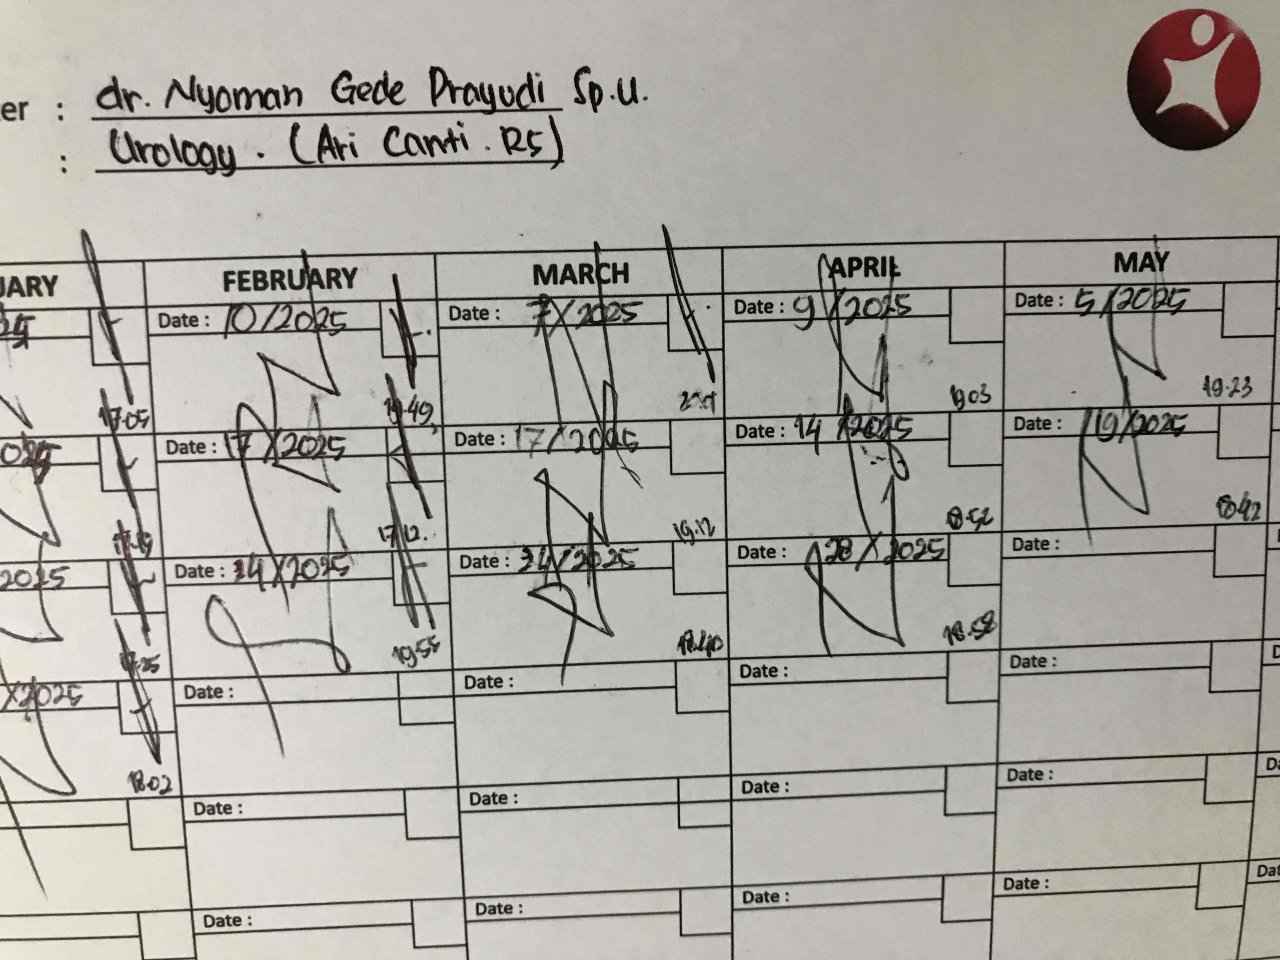 er : dr. Nyoman Gede Prayudi Sp.U.
: Urology. (Ari Canti. RS)
UARY FEBRUARY MARCH APRIL MAY
Date : 10/2025 Date : 7/2025 Date : 9/2025 Date : 5/2025
17.05 19.49 19.03 19.23
Date : 17/2025 Date : 17/2025 Date : 14/2025 Date : 19/2025
17.12. 19.12 18.52 18.42
2025 Date : 24/2025 Date : 24/2025 Date : 28/2025 Date :
19.55 18.40 18.58
/2025 Date : Date : Date : Date :
18.02
Date : Date : Date : Date : Da
Date : Date : Date : Date : Dat